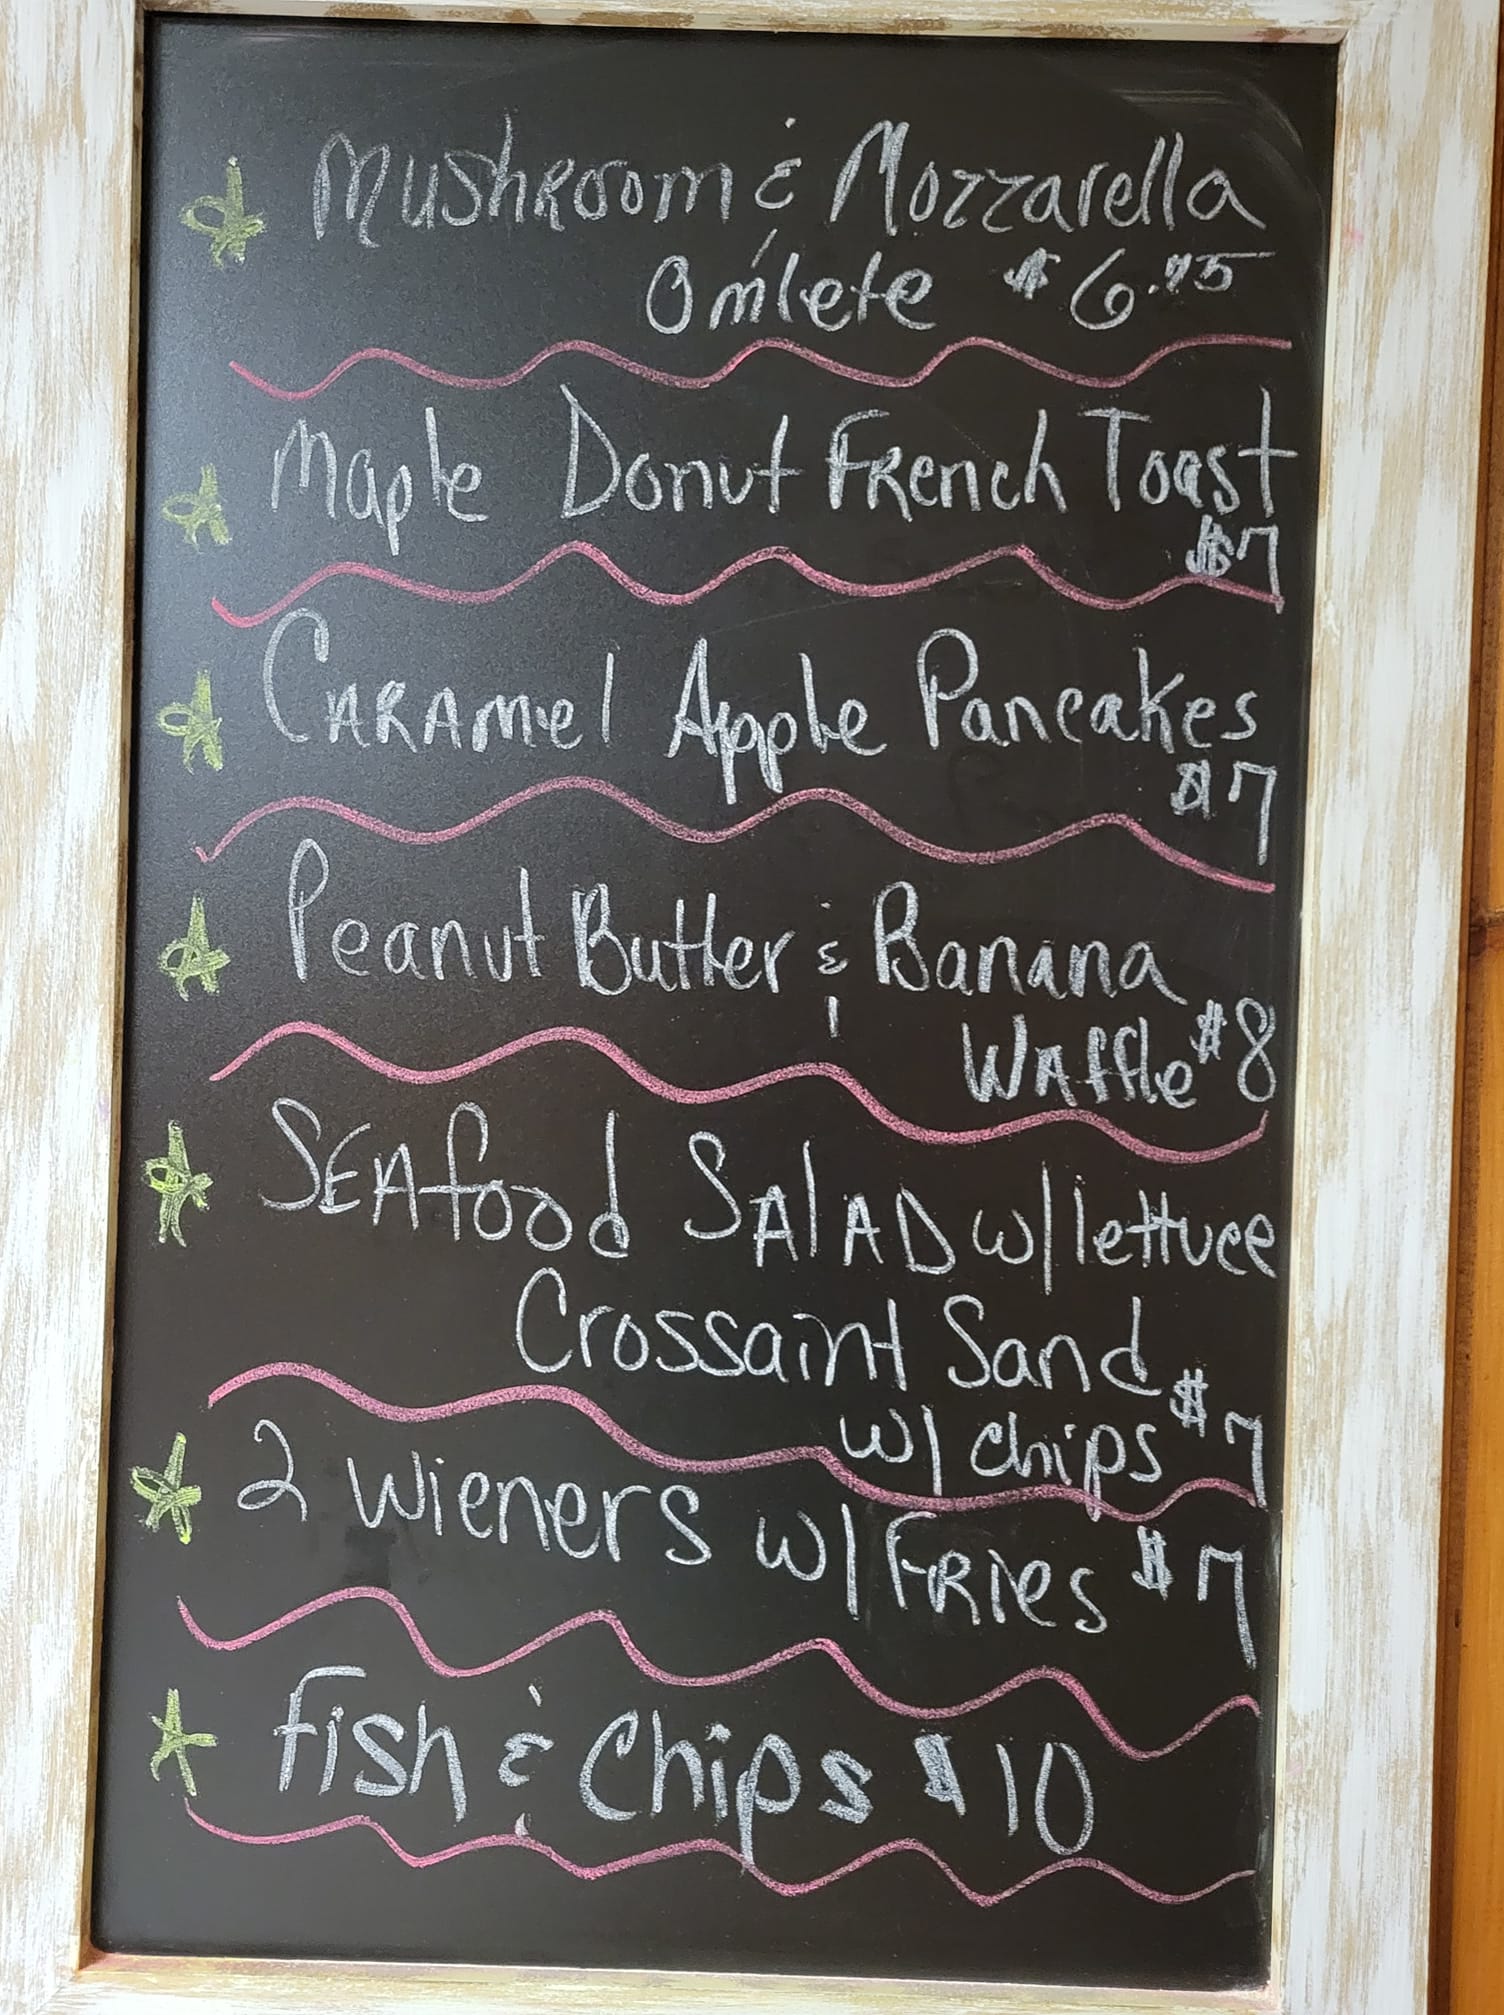 Mushroom & Mozzarella
Omlete $6.75
Maple Donut French Toast
$7
Caramel Apple Pancakes
$7
Peanut Butter & Banana
Waffle $8
Seafood Salad w/ lettuce
Crossaint Sand
w/ chips $7
2 Wieners w/ Fries $7
Fish & Chips $10